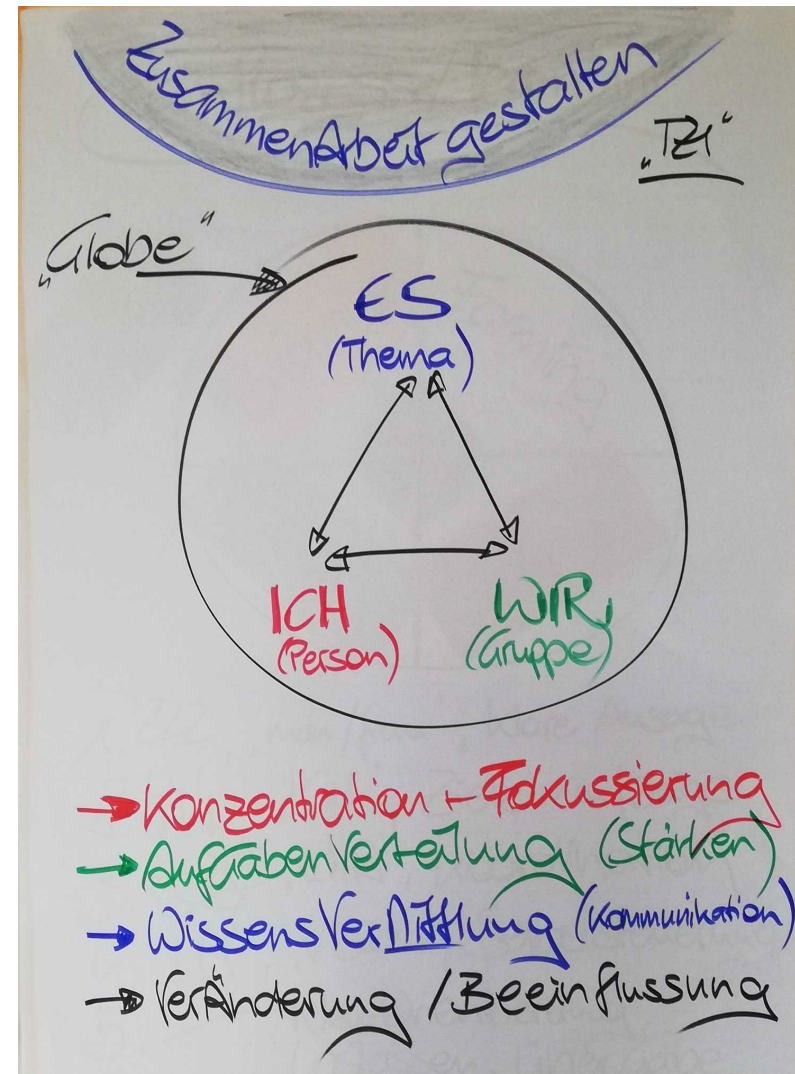 ZusammenArbeit gestalten
„TZI“
„Globe“
ES
(Thema)
ICH
(Person)
WIR
(Gruppe)
→ Konzentration – Fokussierung
→ AufGabenVerteilung (Stärken)
→ WissensVerMittlung (Kommunikation)
→ VerÄnderung / Beeinflussung